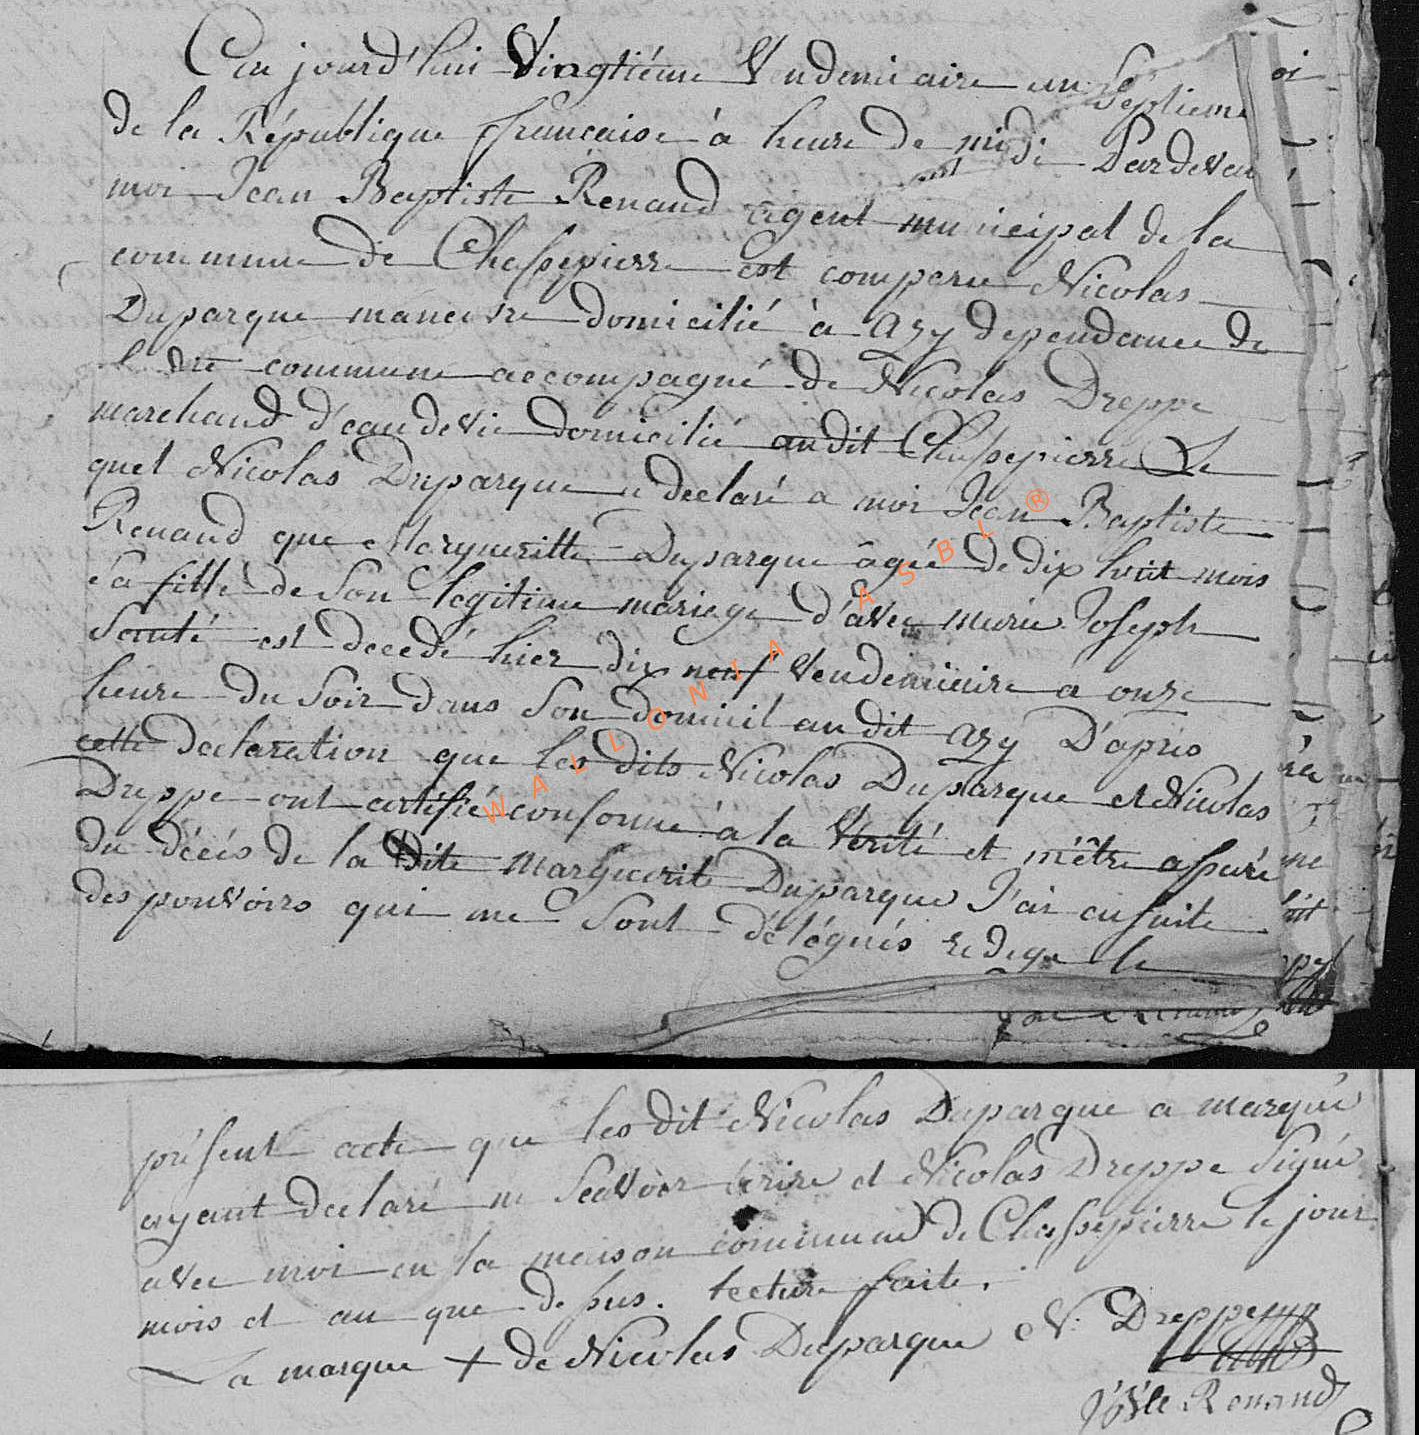 Ce jourd'hui Vingtiéme Vendemiaire an Septieme
de la République francaise à heure de midi Pardevan
moi Jean Baptiste Renaud agent municipal de la
commune de Chassepierre est comparu Nicolas
Duparque manevre domicilié à azy dependance de
l dite commune accompagné de Nicolas Dreppe
marchand d'eau de vie domicilié audit Chassepierre Le
quel Nicolas Duparque a declaré a moi Jean Baptiste
Renaud que Margueritte Duparque âgée de dix huit mois
sa fille de son legitime mariage d'avec marie Joseph
Santé est decedé hier dix neuf Vendemiaire a onze
heure du Soir dans Son domicil audit azy D'apris
cette declaration que les dits Nicolas Duparque et Nicolas
Dreppe ont certifié conforme à la Verité et m'être assuré
du décés de la dite Marguerite Duparque J'ai ensuite
des pouvoirs qui me Sont délégués redigé le
présent acte que les dit Nicolas Duparque a marqué
ayant declaré ne Scavoir écrire et Nicolas Dreppe Signé
avec moi en la maison commune de Chassepierre le jour
mois et an que dessus. lecture faite.
La marque + de Nicolas Duparque N: Dreppe
Renaud
WALLONIA ASBL ®